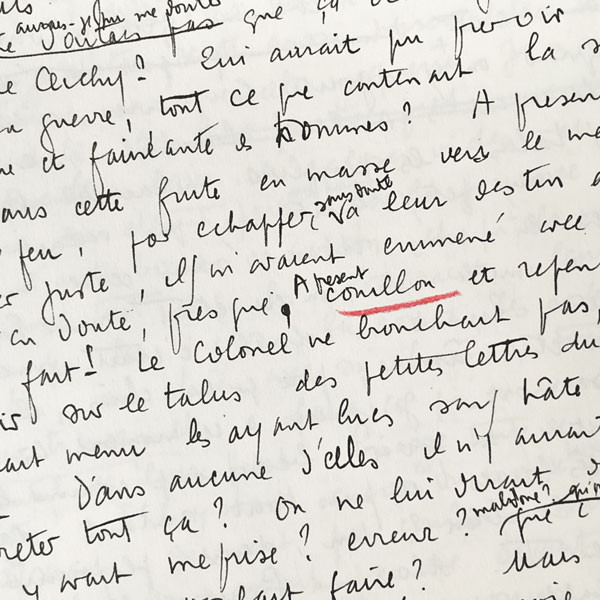 aurais-je pu me douter
voulais pas que ça
Clichy? Qui aurait pu prévoir
guerre, tout ce que contenait la s
et fainéante des hommes? A présen
ans cette fuite en masse vers le me
feu, pour échapper, sans doute leur destin
juste, ils m'avaient emmené avec
Doute, presque. A présent couillon et repen
fait! Le Colonel ne bronchait pas,
sur le talus des petites lettres du
menu les ayant lues sans hâte
Dans aucune d'elles il n'y aurait
reter tout ça? On ne lui Dirait
y avait méprise? erreur? maldonne? que
faire? Mais